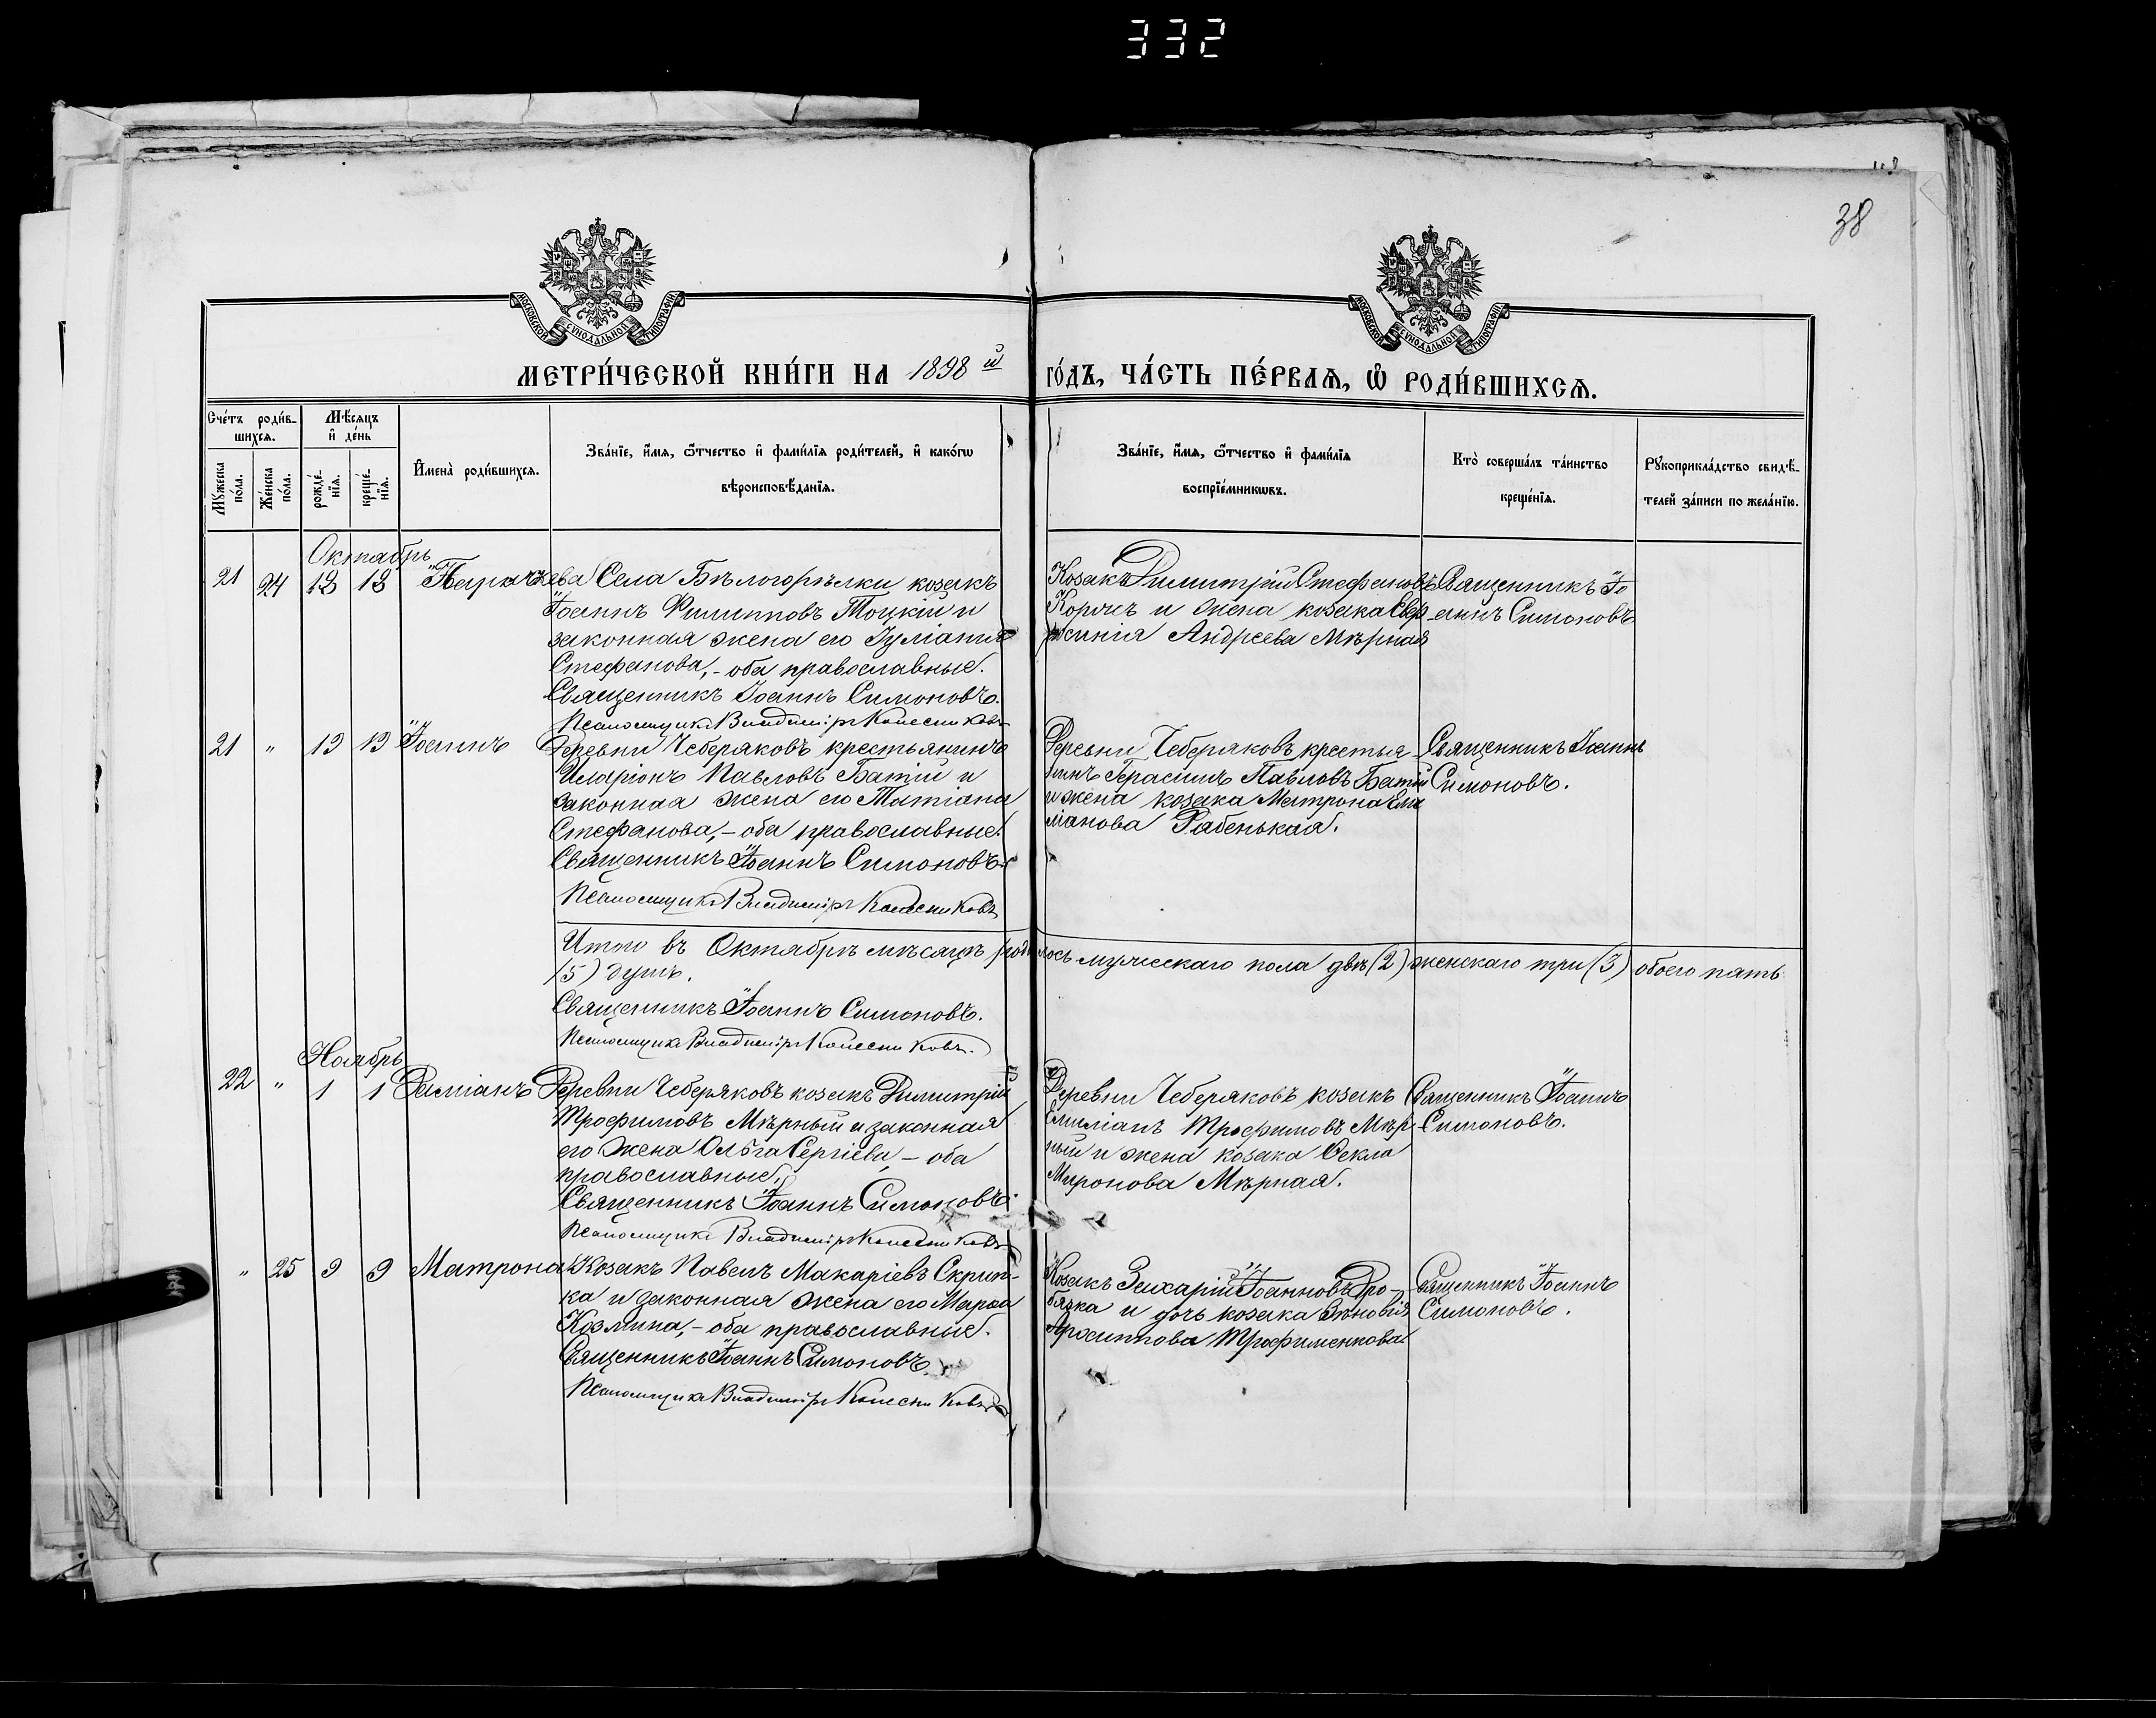 332
38
МОСКОВСКОЙ СѴНОДАЛЬНОЙ ТИПОГРАФІИ
МОСКОВСКОЙ СѴНОДАЛЬНОЙ ТИПОГРАФІИ
МЕТРИ́ЧЕСКОЙ КНИ́ГИ НА 1898 й
ГО́ДЪ, ЧА́СТЬ ПЕ́РВАЯ, Ѽ РОДИ́ВШИХСЯ.
Сче́тъ роди́в-
шихся.
Мѣ́сяцъ
и҆ де́нь
Мꙋ́жеска
по́ла.
Же́нска
по́ла.
рожде́-
нїя.
креще́-
нїя.
И҆мена̀ роди́вшихся.
Зва́нїе, и҆́мя, ѻ҆́тчество и҆ фами́лїя роди́телей, и҆ како́гѡ
вѣроисповѣ́данїя.
Зва́нїе, и҆́мя, ѻ҆́тчество и҆ фами́лїя
воспрїе́мникѡвъ.
Кто̀ соверша́лъ та́инство
креще́нїя.
Рꙋкоприкла́дство свидѣ́-
телей за́писи по жела́нїю.
Октябрь
21 24 13 13 Параскева Села Бѣлогорѣлки козакъ
Іоаннъ Филипповъ Тоцкій и
законная жена его Іуліанія
Стефанова, - оба православные.
Священникъ Іоаннъ Симоновъ.
Псаломщикъ Владиміръ Колесниковъ
Козакъ Димитрій Стефановъ
и жена козака Евф
Андреева Мѣрная
Священникъ Іо
аннъ Симоновъ
21 " 13 13 Іоаннъ Деревни Чеберяковъ крестьянинъ
Иларіонъ Павловъ Батій и
законная жена его Татіана
Стефанова, - оба православные.
Священникъ Іоаннъ Симоновъ
Псаломщикъ Владиміръ Колесниковъ
Деревни Чеберяковъ крестья
нинъ Герасимъ Павловъ Батій
и жена козака Матрона
Рабенькая.
Священникъ Іоаннъ
Симоновъ.
Итого въ Октябрѣ мѣсяцѣ родилось мужескаго пола двѣ (2) женскаго три (3) обоего пять
(5) душъ.
Священникъ Іоаннъ Симоновъ.
Псаломщикъ Владиміръ Колесниковъ.
Ноябрь
22 " 1 1 Даміанъ Деревни Чеберяковъ козакъ Димитрій
Трофимовъ Мѣрный и законная
его жена Ольга Сергіева, - оба
православные.
Священникъ Іоаннъ Симоновъ
Псаломщикъ Владиміръ Колесниковъ
Деревни Чеберяковъ козакъ
Емиліанъ Трофимовъ Мѣр
ный и жена козака Ѳекла
Миронова Мѣрная.
Священникъ Іоаннъ
Симоновъ.
" 25 9 9 Матрона Козакъ Павелъ Макаріевъ Скрип-
ка и законная жена его Марѳа
Козмина, - оба православные.
Священникъ Іоаннъ Симоновъ
Псаломщикъ Владиміръ Колесниковъ
Козакъ Захарій Іоанновъ Дро-
бязка и дочь козака Зѣновія
Трофименкова
Священникъ Іоаннъ
Симоновъ.